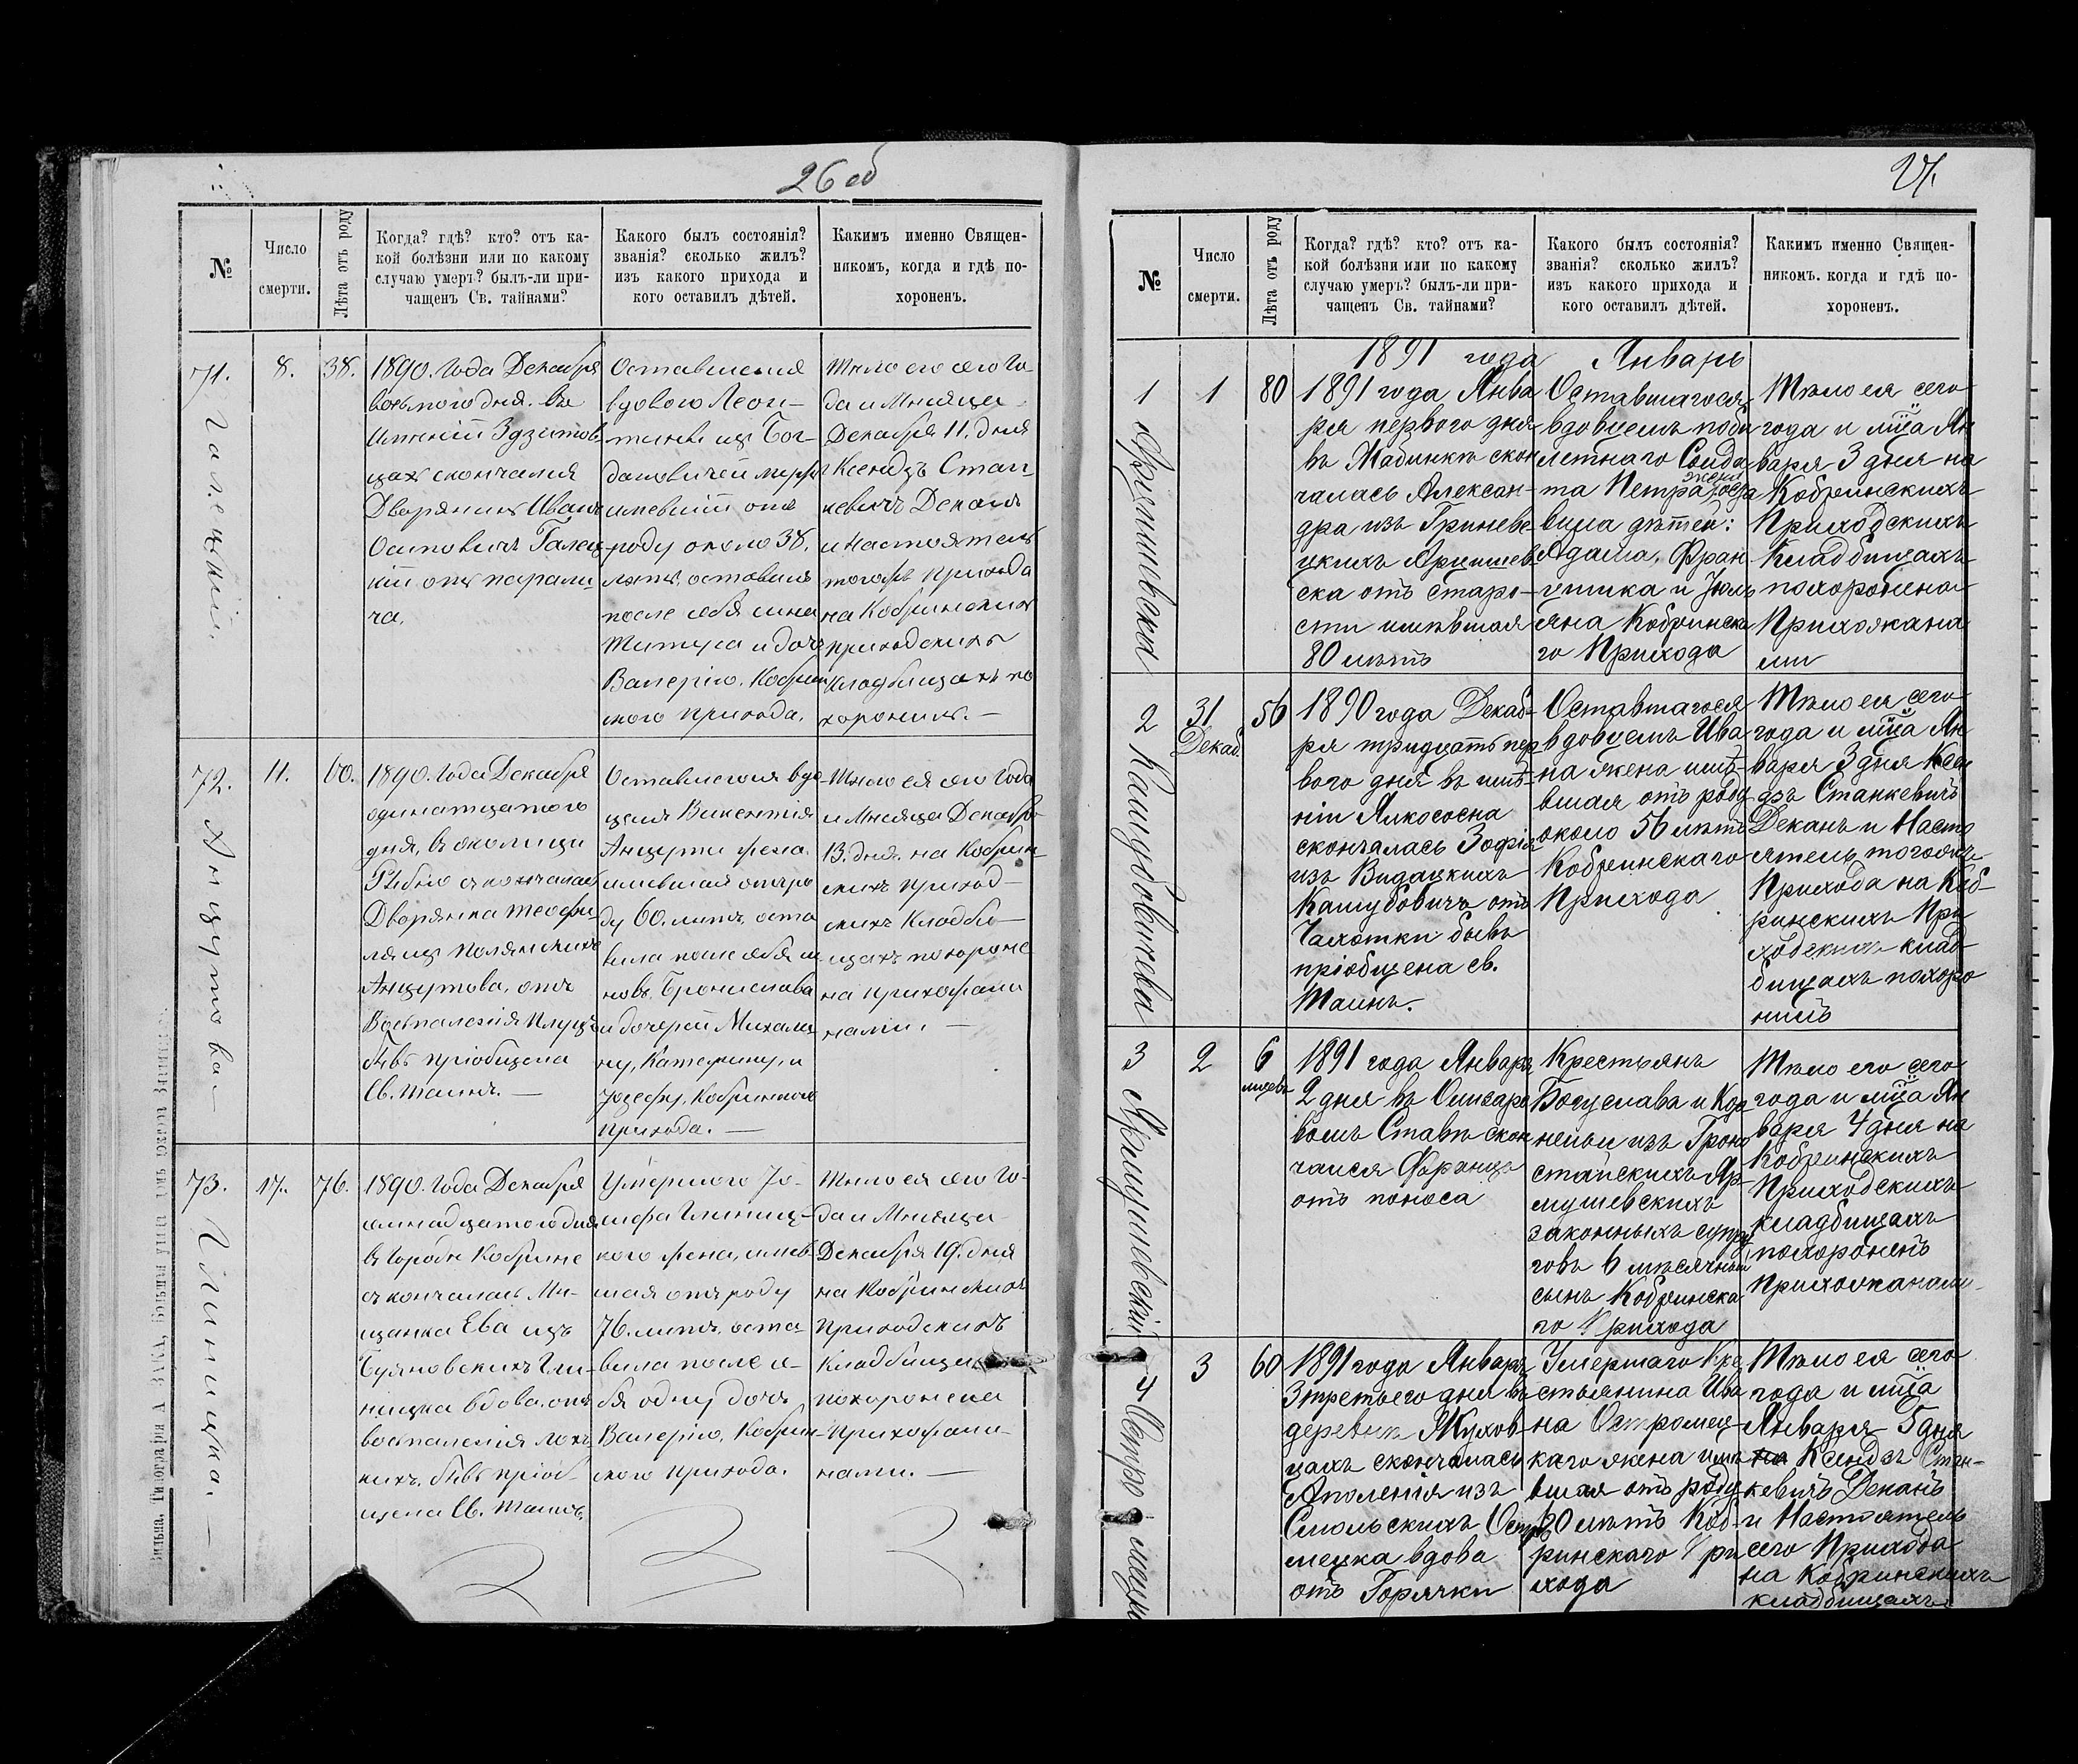 26 об
№
Число
смерти.
Лѣта отъ роду
Когда? гдѣ? кто? отъ ка-
кой болѣзни или по какому
случаю умеръ? былъ-ли при-
чащенъ Св. тайнами?
Какого былъ состоянія?
званія? сколько жилъ?
изъ какого прихода и
кого оставилъ дѣтей.
Какимъ именно Священ-
никомъ, когда и гдѣ по-
хороненъ.
71.
Галецкій.
8.
38.
1890. Года Декабря
восьмого дня. въ
Имѣніи Здзитов
цах скончался
Дворянинъ Иванъ
Осиповичъ Галец
кій отъ парали
ча.
Оставшейся
вдовою Леон-
тины изъ Бог-
дановичей мужъ
имевшій отъ
роду около 38.
лѣтъ, оставилъ
после себя сына
Титуса и дочь
Валерію. Кобрин
ского прихода.
Тѣло его сего Го
да и Мѣсяца
Декабря 11. дня
Ксендзъ Стан
кевичъ Деканъ
и Настоятель
тогожъ прихода
на Кобринскихъ
приходскихъ
Кладбищахъ по
хоронилъ. —
72.
Анцутова —
11.
60.
1890. Года Декабря
одинатцатого
дня, в околици
Рыбно скончалась
Дворянка Теофи
ля изъ Полянскихъ
Анцутова, отъ
Воспаленія плуцъ
бывъ пріобщена
Св. Таинъ. —
Оставшегося вдо
цемъ Викентія
Анцуты жена
имевшая отъ ро
ду 60. лѣтъ, оста
вила после себя сы
новъ Бронислава
и дочерей Михали
ну, Катерину, и
Юзефу, Кобринского
прихода. —
Тѣло ея сего Года
и Мѣсяца Декабря
13. дня. на Кобрин
скихъ приход-
скихъ Кладби-
щахъ похороне
на прихожа
нами. —
73.
Глиницка. —
17.
76.
1890. Года Декабря
семнадцатого дня
в Городѣ Кобринѣ
скончалась Мѣ-
щанка Ева изъ
Буяновскихъ Гли-
ницка вдова, отъ
воспаления лёх
кихъ, бывъ пріоб-
щена Св. Таинъ,
Умершого Іо-
сифа Глиниц-
кого жена, имев-
шая отъ роду
76. лѣтъ, оста
вила после се-
бя одну дочь
Валерію, Кобрин-
ского прихода.
Тѣло ея сего Го-
да и Мѣсяца
Декабря 19. дня
на Кобринскихъ
Приходскихъ
Кладбищахъ
похоронена
Прихожа-
нами. —
Вильна, Типографія А.
27.
№
Число
смерти.
Лѣта отъ роду
Когда? гдѣ? кто? отъ ка-
кой болѣзни или по какому
случаю умеръ? былъ-ли при-
чащенъ Св. тайнами?
Какого былъ состоянія?
званія? сколько жилъ?
изъ какого прихода и
кого оставилъ дѣтей.
Какимъ именно Священ-
никомъ. когда и гдѣ по-
хороненъ.
1891 года Январь
1
1
80
1891 года Янва
ря первого дня
въ Мадинкѣ скон
чалась Алексан-
дра изъ Гриневе
цкихъ
ска отъ старо-
сти имѣвшая
80 лѣтъ
Оставшагося
вдовцемъ
лѣтнаго Солда
та Петра жена оста
вила дѣтей:
Адама, Фран
цишка и Юль
яна Кобринска
го Прихода
Тѣло ея сего
года и мца Ян
варя 3 дня на
Кобринскихъ
Приходскихъ
Кладбищахъ
похоронена
Прихожана
ми
2
Кашубовичева
31
Декаб.
56
1890 года Декаб-
ря тридцать пер
вого дня въ имѣ-
ніи Ялкососна
скончалась Зофія
изъ Видацкихъ
Кашубовичъ отъ
Чахотки бывъ
пріобщена св.
Таинъ.
Оставшагося
вдовцемъ Ива
на жена имѣ-
вшая отъ роду
около 56 лѣтъ
Кобринскаго
Прихода
Тѣло ея сего
года и мца Ян
варя 3 дня Ксен
дзъ Станкевичъ
Деканъ и Насто
ятель тогожъ
Прихода на Коб-
ринскихъ При
ходскихъ клад-
бищахъ похоро
нилъ
3
Ярмушевскій
2
6
мцевъ
1891 года Январь
2 дня въ
вомъ Ставѣ скон
чался Фаранцъ
отъ поноса
Крестьянъ
Богуслава и Кор
неліи изъ Гроно
стайскихъ Яр-
мушевскихъ
законныхъ супру
говъ 6 мѣсячный
сынъ Кобринска
го Прихода
Тѣло его сего
года и мца Ян
варя 4 дня на
Кобринскихъ
Приходскихъ
кладбищахъ
похороненъ
Прихожанами
4 Остромецка
3
60
1891 года Январь
3 третьего дня въ
деревнѣ Жухов-
цахъ скончалась
Аполенія изъ
Смольскихъ Остро
мецка вдова
отъ Горячки
Умершаго Кре
стьянина Ива
на Остромец-
каго жена имѣ
вшая отъ роду
60 лѣтъ Коб-
ринскаго При
хода
Тѣло ея сего
года и мца
Января 5 дня
на Ксендзъ Стан-
кевичъ Деканъ
и Настоятель
сего Прихода
на Кобринскихъ
кладбищахъ